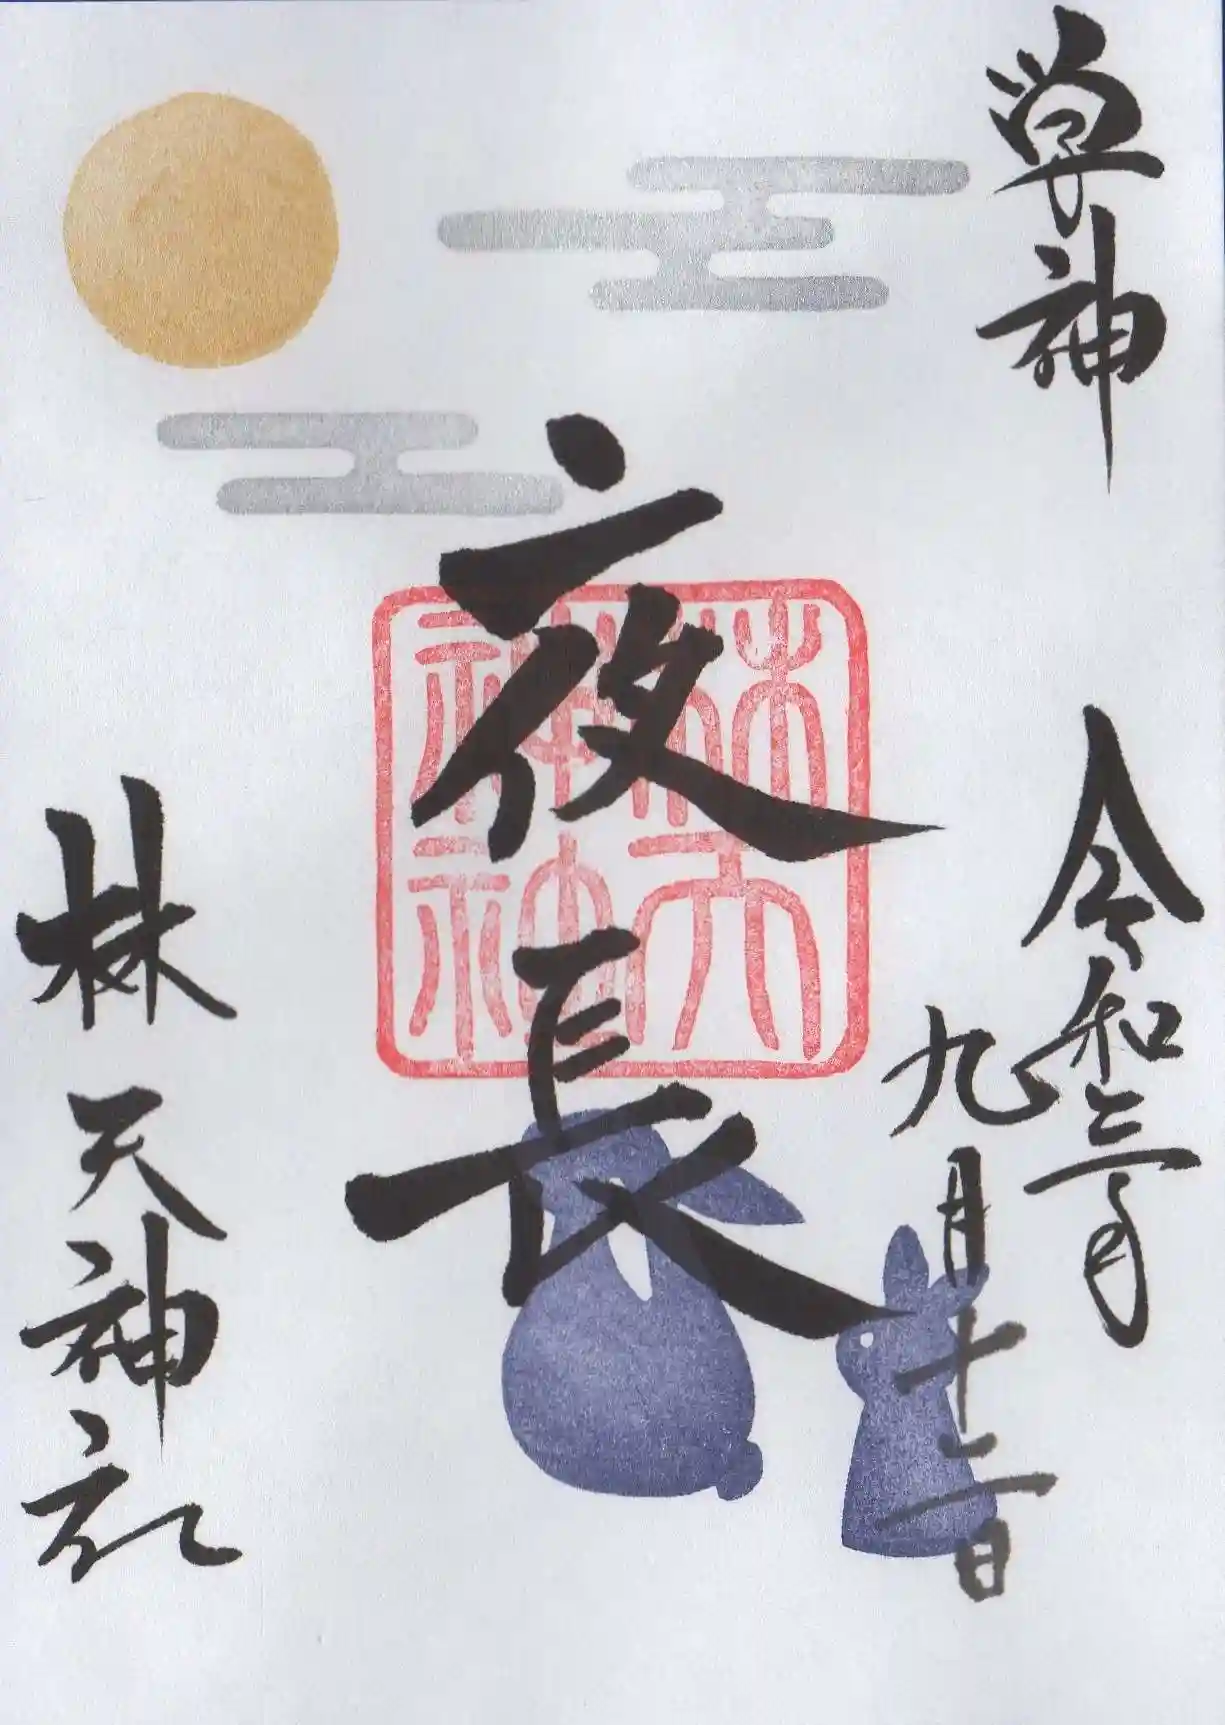 学神
令和三年
九月十二日
夜長
林天神社
林天
神社